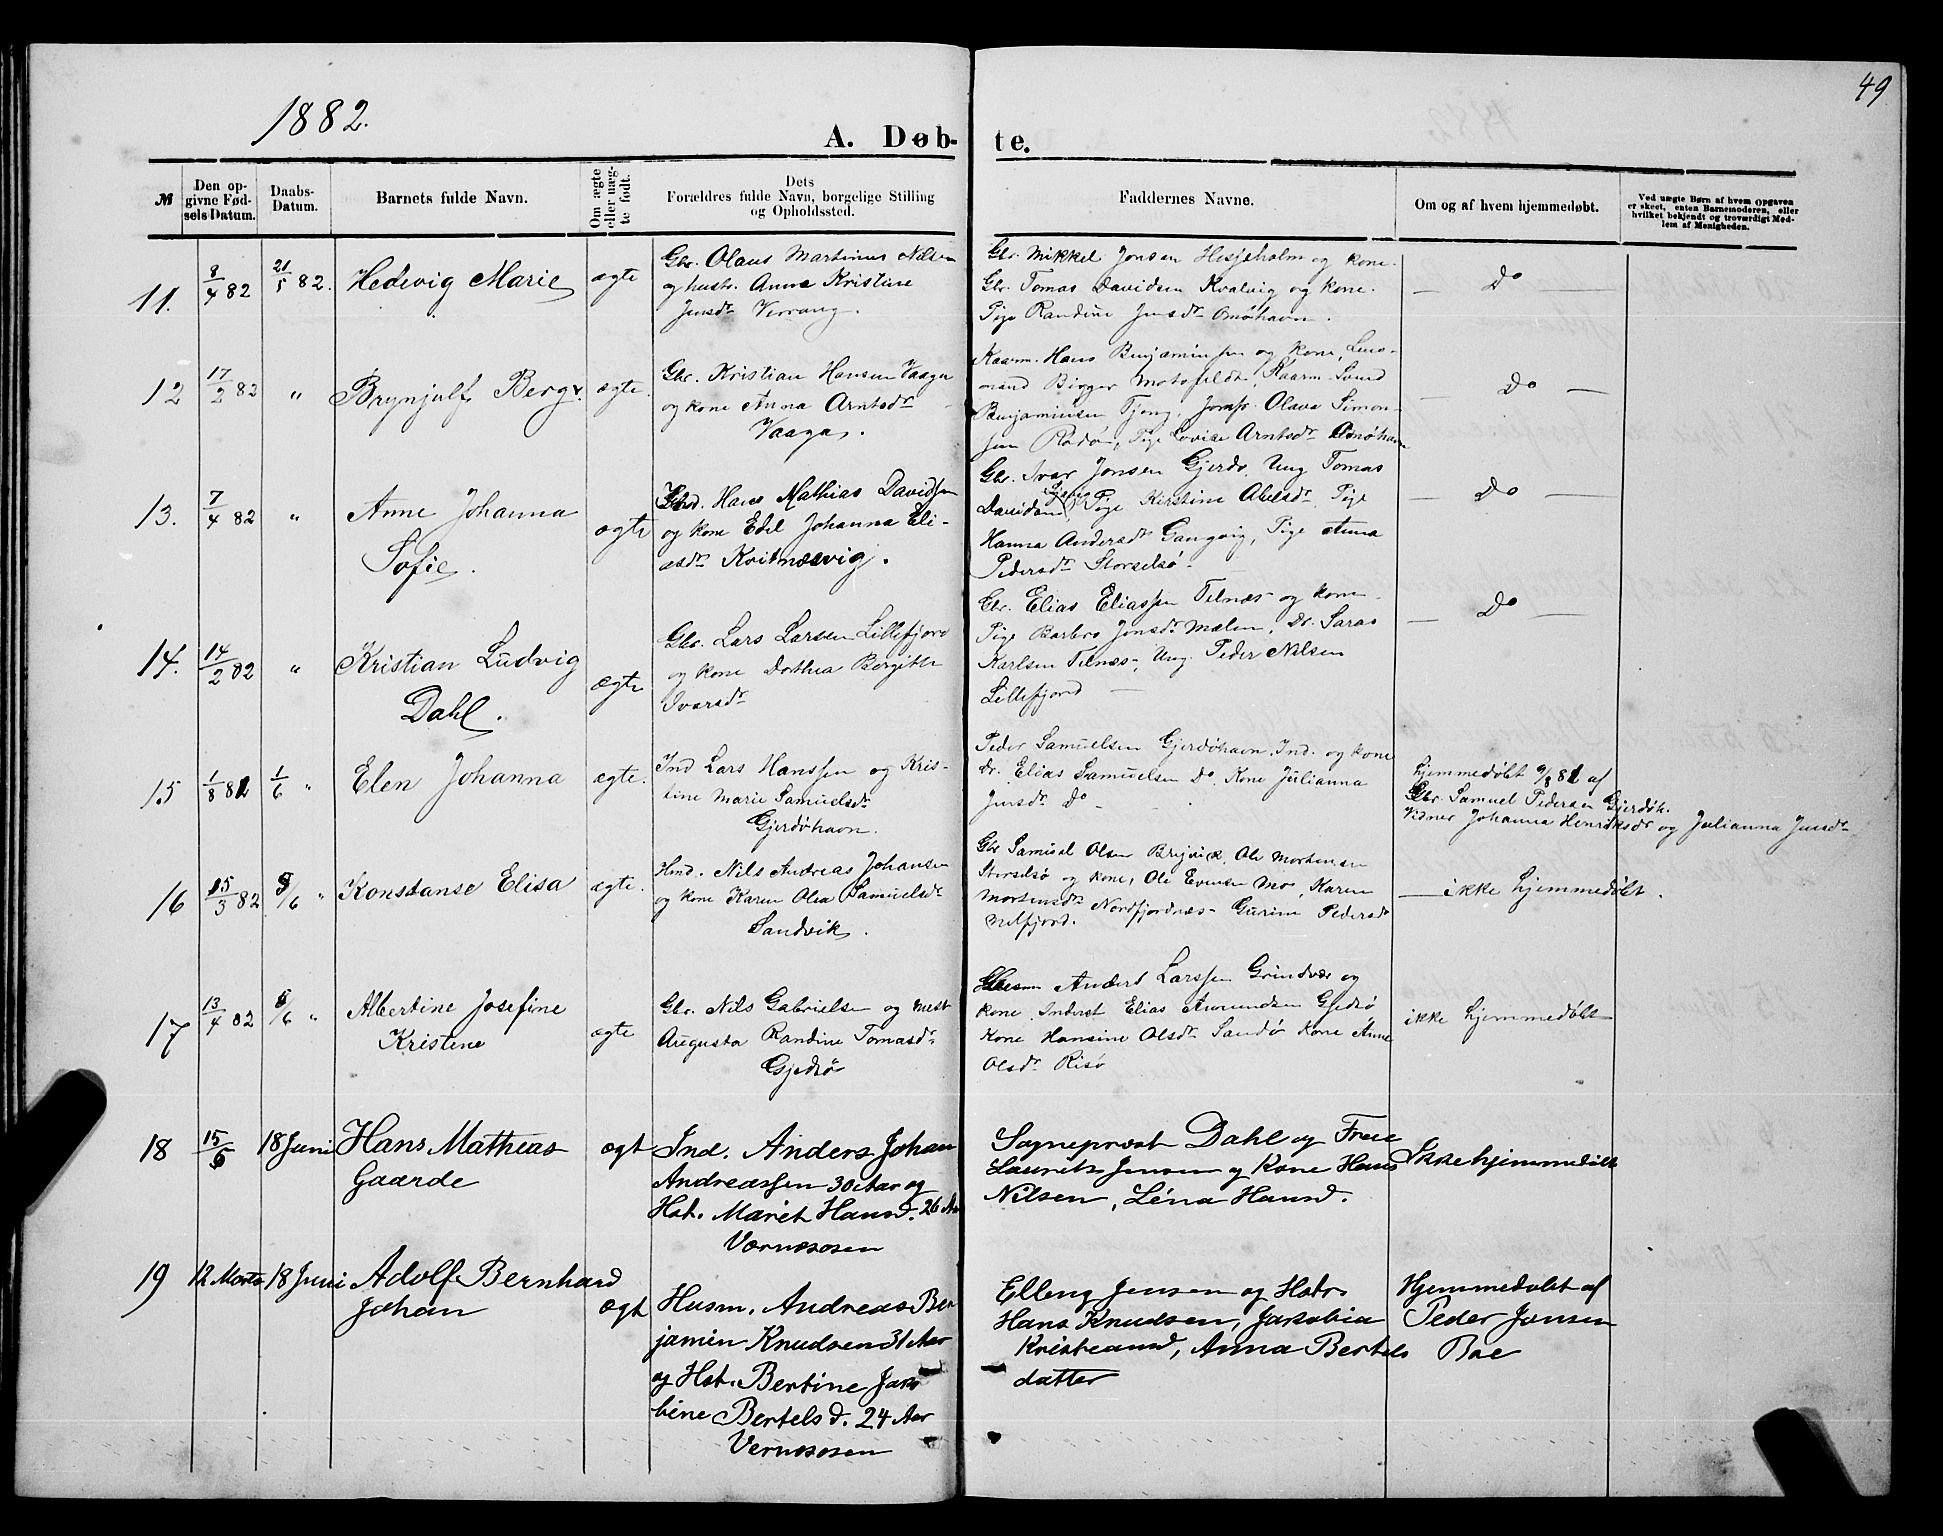 49
1882.
A. Døb-
te.
№
Den op-
givne Fød-
sels Datum.
Daabs-
Datum.
Barnets fulde Navn.
Om ægte
eller uæg-
te født.
Dets
Forældres fulde Navn, borgelige Stilling
og Opholdssted.
Faddernes Navne.
Om og af hvem hjemmedøbt.
Ved uægte Børn af hvem Opgaven
er skeet, enten Barnemoderen, eller
hvilket bekjendt og troværdigt Med-
lem af Menigheden.
11.
8/4 82
21/5 82.
Hedevig Marie
ægte
Gbr. Olaus Martinus Nilsen
og hustr. Anna Kristine
Jensdr Verrang.
Gbr. Mikkel Jonsen Hesjeholm og kone.
Gbr. Tomas Davidsen Kvalvig og kone.
Pige Randine Jensdr Omøhavn.
— Do —
12
17/2 82
"
Brynjulf Berg.
ægte.
Gbr. Kristian Hansen Vaaga
og kone Anna Arntsdr
Vaaga.
Kaarm. Hans Benjaminsen og kone, Lens-
mand Birger Motzfeldt, Kaarm. Sund
Benjaminsen Tjong, Jomfr. Olava Simon-
sen Rødø, Pige Lovise Arntsdr Omøhavn
— Do —
13.
7/4 82
"
Anne Johanna
Sofie.
ægte
Hans Mathias Davidsen
og kone Edel Johanna Eli-
asdr Kvitnæsvig.
Gbr. Ivar Jonsen Gjerdø, Ung. Tomas
Davidsen, Pige Kirstine Abelsdr, Pige
Hanna Andersdr Gangvig, Pige Anna
Pedersdr Storselsø
— Do —
14.
14/2 82
"
Kristian Ludvig
Dahl.
ægte
Gbr. Lars Larsen Lillefjord
og kone Dorthea Bergitte
Ivarsdr
Gbr. Elias Eliassen Telnæs og kone
Pige Barbro Jonsdr Mælen, Dr. Saras
Karlsen Telnæs, Ung. Peder Nilsen
Lillefjord —
— Do —
15
1/8 81
1/6 "
Elen Johanna
ægte.
Ind Lars Hanssen og Kris-
tine Marie Samuelsdr
Gjerdøhavn.
Peder Samuelsen Gjerdøhavn. Ind. og kone
Dr. Elias Samuelsen Do. Kone Julianna
Jensdr Do
hjemmedøbt 9/8 81 af
Gbr. Samuel Pedersen Gjerdøh.
Vidner Johanna Henriksdr og Julianna Jensdr
16
15/3 82
/6 "
Konstanse Elisa
ægte.
Hmd. Nils Andreas Johansen
og kone Karen Olea Samuelsdr
Sandvik.
Gbr Samuel Olsen Brejvik, Ole Mortensen
Storselsø og kone, Ole Evensen Mo, Karen
Mortensdr Nordfjordnæs Gurine Pedersdr
Melfjord.
— ikke hjemmedøbt.
17
13/4 82
/6 "
Albertine Josefine
Kristine
ægte
Gbr. Nils Gabrielsen og Hustr
Augusta Randine Tomasdr
Gjedsø
Anders Larssen Grindvær og
kone Inderst Elias Amundsen Gjedsø
Kone Hansine Olsdr Sandø Kone Anne
Olsdr Risø
ikke hjemmedøbt
18
15/
18 Juni
Hans Mathias
Gaarde
ægt
Ind. Anders Johan
Andreassen 30 Aar og
Hst. Maret Hansd. 26 Aar
Værnesosen
Sogneprest Dahl og Frue
Laurits Jensen og Kone Hans
Nilsen, Lena Hansd.
Ikke hjemmedøbt
19
12 Marts
18 Juni
Adolf Bernhard
Johan
ægt
Husm. Andreas Ben
jamin Knudsen 31 Aar
og Hst. Bertine Jako
bine Bertelsd. 24 Aar
Vernesosen
Elling Jensen og Hstr.
Hans Knudsen, Jakobia
Kristiansd, Anna Bertels
datter
Hjemmedøbt af
Peder Jonsen
Bae